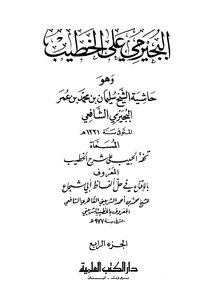 البجيرمي على الخطيب
وهو
حاشية الشيخ سليمان بن محمد بن عمر
البجيرمي الشافعي
المتوفى سنة ١٢٢١هـ
المسماة
تحفة الحبيب على شرح الخطيب
المعروف
بالإقناع في حل ألفاظ أبي شجاع
للشيخ محمد بن أحمد الشربيني القاهري الشافعي
المعروف بالخطيب الشربيني
المتوفى سنة ٩٧٧هـ
الجزء الرابع
دار الكتب العلمية
بيروت - لبنان